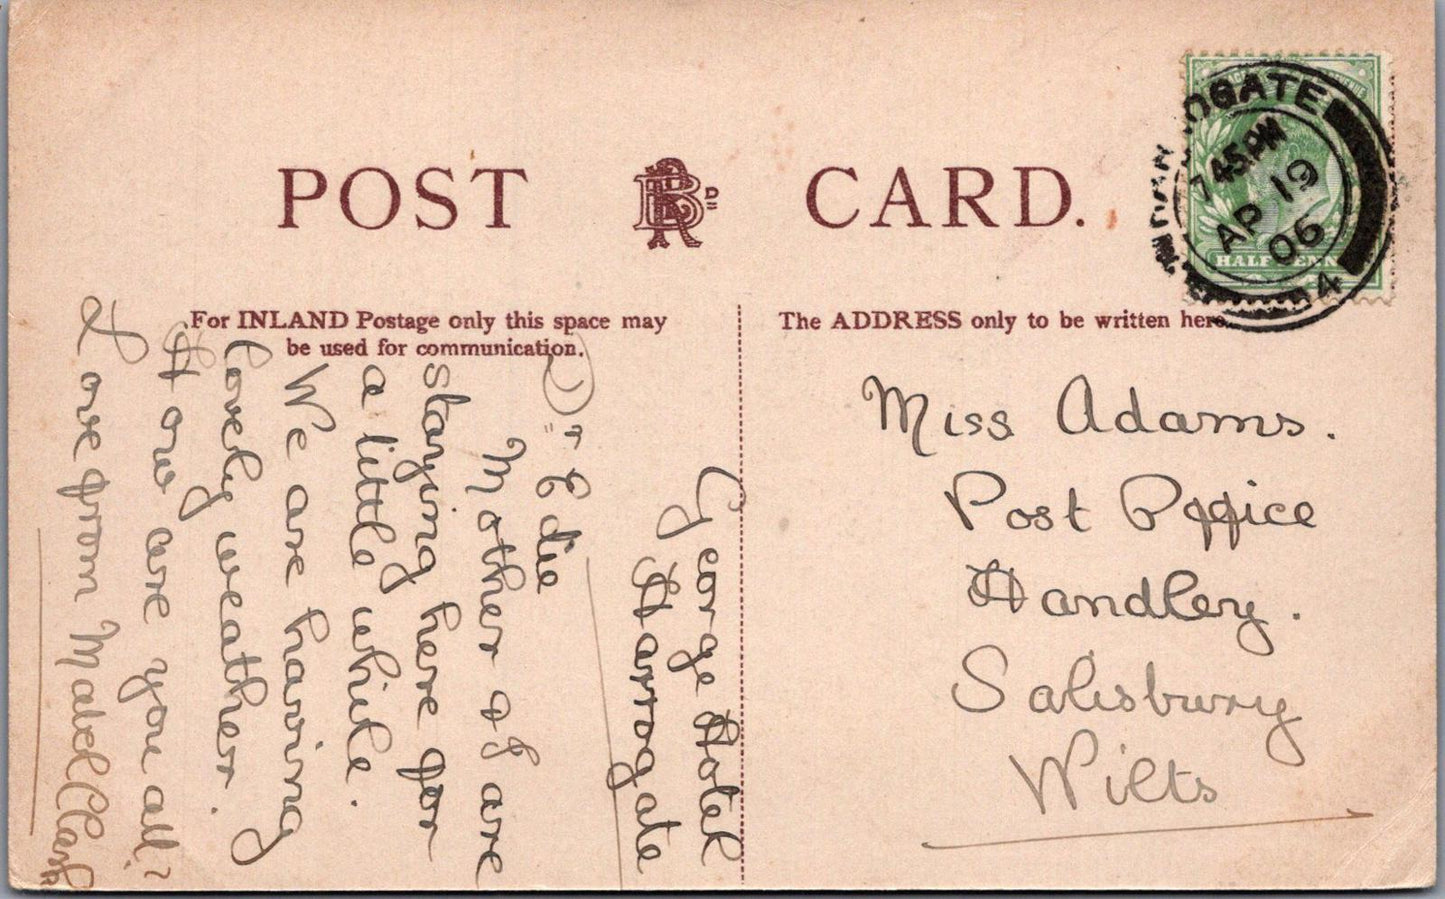 POST CARD.
For INLAND Postage only this space may
be used for communication.
The ADDRESS only to be written here.
7 45 PM
AP 19
06
HALF PENN
Miss Adams.
Post Office
Handley.
Salisbury
Wilts
George Hotel
Harrogate
Dr Edie
Mother & I are
staying here for
a little while.
We are having
lovely weather.
How are you all?
Love from Mabel